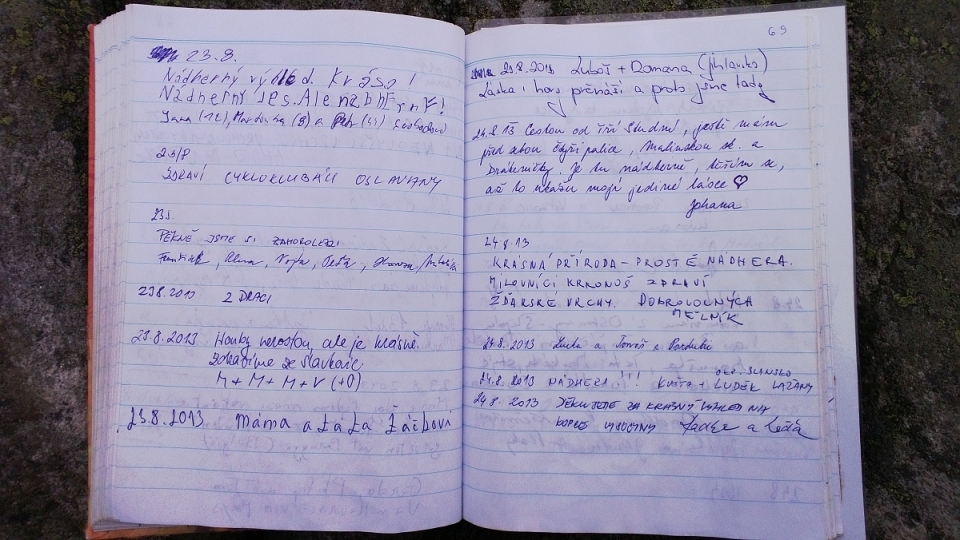 23.8.
Nádherný výhled. Krása!
Nádherný les. Ale nádherný!
Jana (12), (8) a Petr (44)
23/8
ZDRAVÍ CYKLOKLUBÁCI OSLAVANY
23.8.
PĚKNĚ JSME SI ZAHOROLEZLI
František, Alena, Vojta,
23.8.2013 2 DRACI
23.8.2013 Houby nerostou, ale je krásně.
zdravíme ze Slavkovic
M + M + M + V (+O)
23.8.2013 Máma a Láďa Žáčkovi
69
23.8.2013 Luboš + Romana (Jihlavsko)
Láska i hory přenáší a proto jsme tady
24.8.13 Cestou od Tří Studní, ještě mám
před sebou Čtyři palice, Malínskou sk. a
Dráteničky. Je tu nádherně, těším se,
až to ukážu mojí jediné lásce ♡
Johana
24.8.13
KRÁSNÁ PŘÍRODA – PROSTĚ NÁDHERA.
MILOVNÍCI KRKONOŠ ZDRAVÍ
ŽĎÁRSKÉ VRCHY. DOBROVOLNÝCH
MĚLNÍK
24.8.2013 a Tomáš z Pardubic
24.8.2013 NÁDHERA!!! KVĚTA + LUDĚK LAŽANY
24.8.2013 DĚKUJEME ZA KRÁSNÝ VÝHLED NA
VYSOČINY a